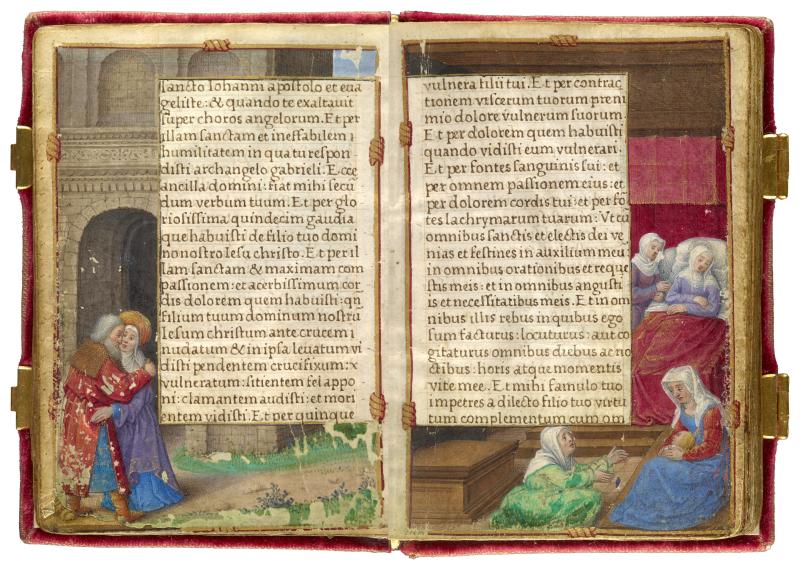 sancto Iohanni apostolo et eua
geliste: & quando te exaltauit
super choros angelorum. Et per
illam sanctam et ineffabilem
humilitatem in qua tu respon
disti archangelo gabrieli. Ecce
ancilla domini: fiat mihi secu
dum verbum tuum. Et per glo
riosissima quindecim gaudia
que habuisti de filio tuo domi
no nostro Iesu christo. Et per il
lam sanctam & maximam com
passionem: et acerbissimum cor
dis dolorem quem habuisti: qn
filium tuum dominum nostru
Iesum christum ante crucem
nudatum & in ipsa leuatum vi
disti pendentem crucifixum:
vulneratum: sitientem fel appo
ni: clamantem audisti: et mori
entem vidisti. Et per quinque
vulnera filii tui. Et per contrac
tionem viscerum tuorum pre ni
mio dolore vulnerum suorum.
Et per dolorem quem habuisti
quando vidisti eum vulnerari.
Et per fontes sanguinis sui: et
per omnem passionem eius: et
per dolorem cordis tui: et per fo
tes lachrymarum tuarum: Vt cu
omnibus sanctis et electis dei ve
nias et festines in auxilium meu
in omnibus orationibus et reque
stis meis: et in omnibus angusti
is et necessitatibus meis. Et in om
nibus illis rebus in quibus ego
sum facturus: locuturus: aut co
gitaturus omnibus diebus ac no
ctibus: horis atque momentis
vite mee. Et mihi famulo tuo
impetres a dilecto filio tuo virtu
tum complementum cum om